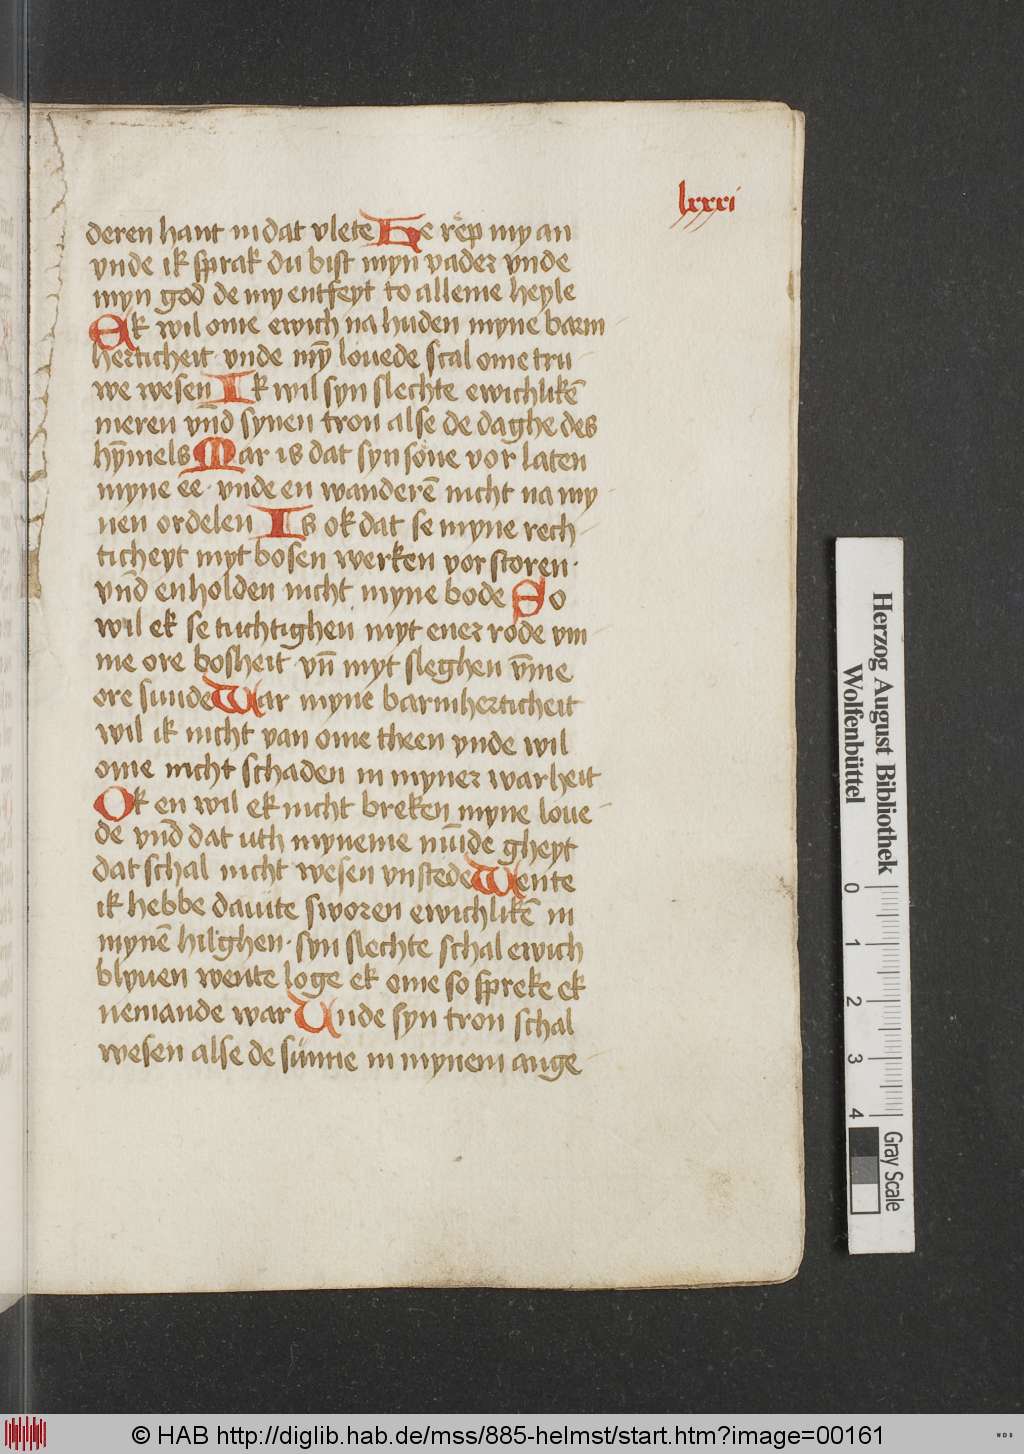 lxxxi
deren hant in dat vlete He rep my an
vnde ik sprak du bist myn vader vnde
myn god de my entfeyt to alleme heyle
Ek wil ome ewich na huden myne barm
herticheit vnde mȳ louede scal ome tru
we wesen Ik wil syn slechte ewichlikē
meren vn̄d synen tron alse de daghe des
hȳmels Mar is dat syn sone vor laten
myne ee · vnde en wanderē nicht na my
nen ordelen Is ok dat se myne rech
ticheyt myt bosen werken vor storen ·
vn̄d en holden nicht myne bode So
wil ek se tuchtighen myt ener rode vm
me ore bosheit vn̄ myt sleghen v̄me
ore sunde War myne barmherticheit
wil ik nicht van ome theen vnde wil
ome nicht schaden in myner warheit
Ok en wil ek nicht breken myne loue
de vn̄d dat uth myneme mūde gheyt
dat schal nicht wesen vnstede Wente
ik hebbe dauite sworen ewichlikē in
mynē hilghen · syn slechte schal ewich
blyuen wente loge ek ome so spreke ek
nemande war Unde syn tron schal
wesen alse de sunne in mynem ange
Herzog August Bibliothek
Wolfenbüttel
0 1 2 3 4
Gray Scale
© HAB http://diglib.hab.de/mss/885-helmst/start.htm?image=00161